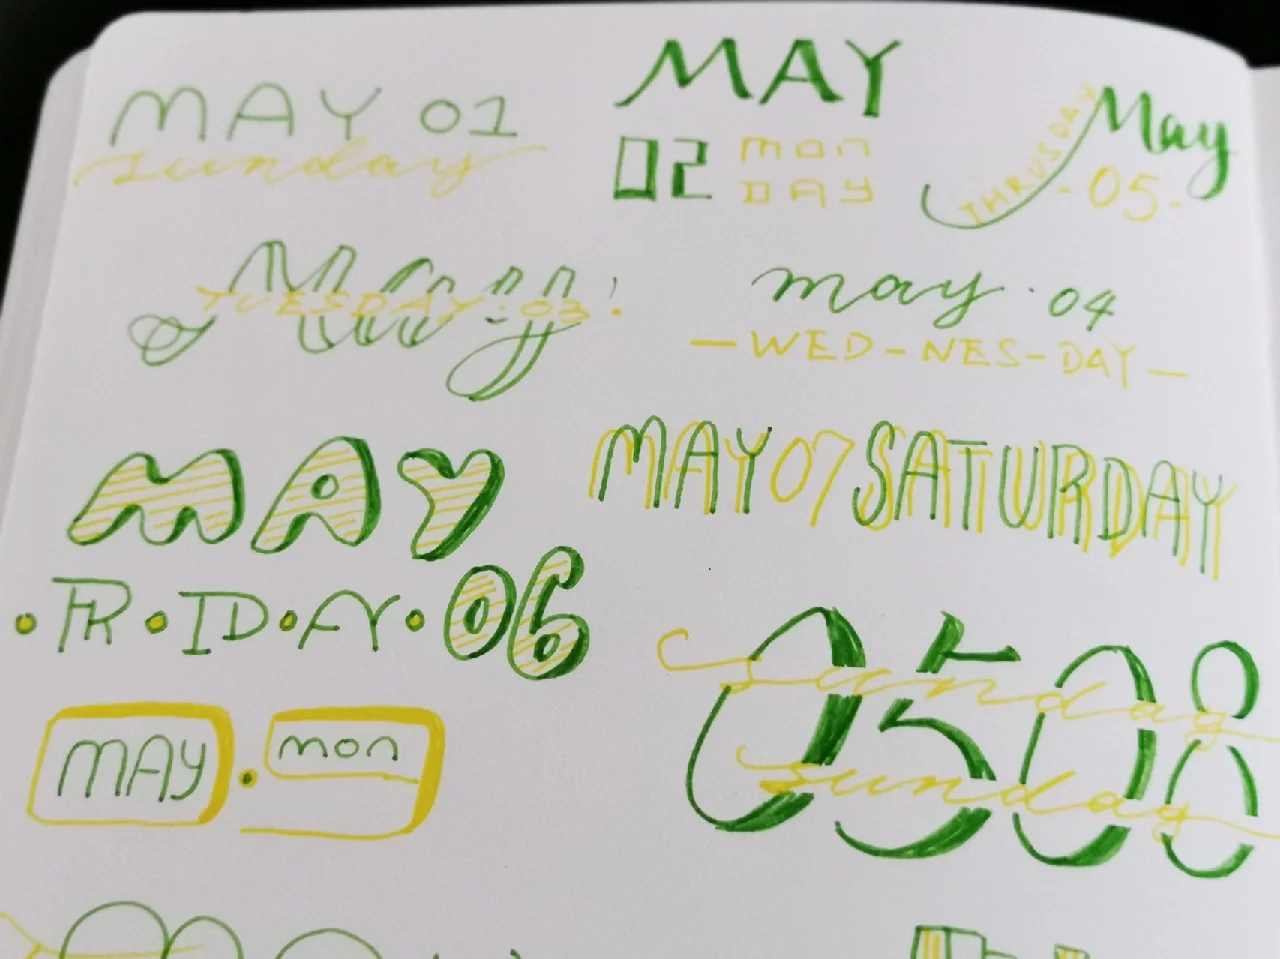 MAY 01
sunday
MAY
02 MON
DAY
May
THRUSDAY
-05-
May
TUESDAY·03·
may·04
—WED-NES-DAY—
MAY
·FR·ID·AY·06
MAY07SATURDAY
0508
sunday
sunday
MAY·mon